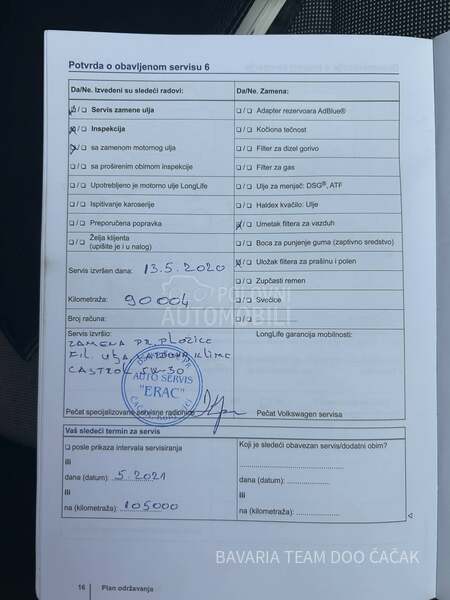 Potvrda o obavljenom servisu 6
Da/Ne. Izvedeni su sledeći radovi:
Da/Ne. Zamena:
Servis zamene ulja
Adapter rezervoara AdBlue®
Inspekcija
Kočiona tečnost
sa zamenom motornog ulja
Filter za dizel gorivo
sa proširenim obimom inspekcije
Filter za gas
Upotrebljeno je motorno ulje LongLife
Ulje za menjač: DSG®, ATF
Ispitivanje karoserije
Haldex kvačilo: Ulje
Preporučena popravka
Umetak filtera za vazduh
Želja klijenta
(upišite je i u nalog)
Boca za punjenje guma (zaptivno sredstvo)
Servis izvršen dana: 13.5.2020
Uložak filtera za prašinu i polen
Zupčasti remen
Kilometraža: 90004
Svećice
Broj računa:
POLOVNI
AUTOMOBILI
Servis izvršio:
LongLife garancija mobilnosti:
ZAMENA PR. PLOČICE
FIL. ULJA VAZDUHA KLIME
CASTROL 5W-30
AUTO SERVIS
"ERAC"
Pečat specijalizovane servisne radionice
Pečat Volkswagen servisa
Vaš sledeći termin za servis
posle prikaza intervala servisiranja
Koji je sledeći obavezan servis/dodatni obim?
ili
dana (datum): 5.2021
dana (datum):
ili
ili
na (kilometraža): 105000
na (kilometraža):
BAVARIA TEAM DOO ČAČAK
16 Plan održavanja